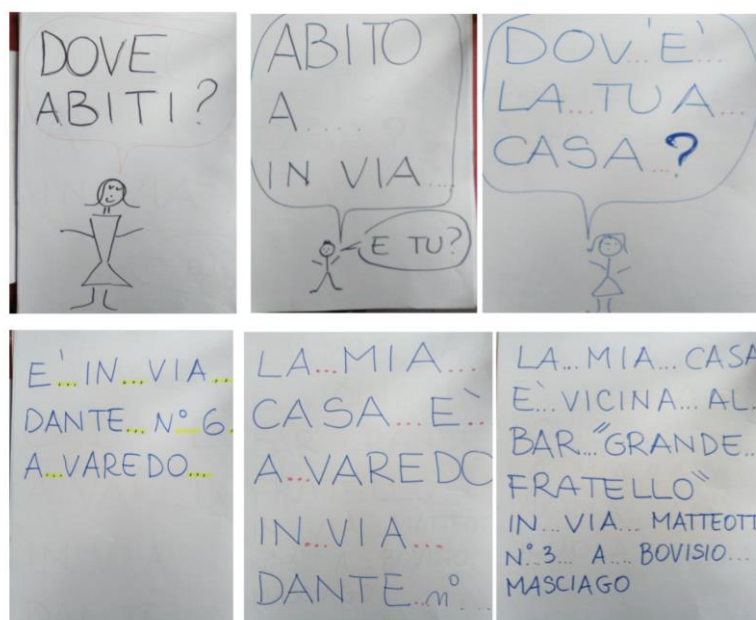 DOVE
ABITI?
ABITO
A....
IN VIA...
E TU?
DOV'E'...
LA...TUA...
CASA...?
E'...IN...VIA...
DANTE...N°6
A...VAREDO...
LA...MIA...
CASA...È...
A...VAREDO
IN...VIA...
DANTE...n°...
LA...MIA...CASA
È...VICINA...AL...
BAR..."GRANDE...
FRATELLO"
IN...VIA...MATTEOTT
N°3...A...BOVISIO...
MASCIAGO